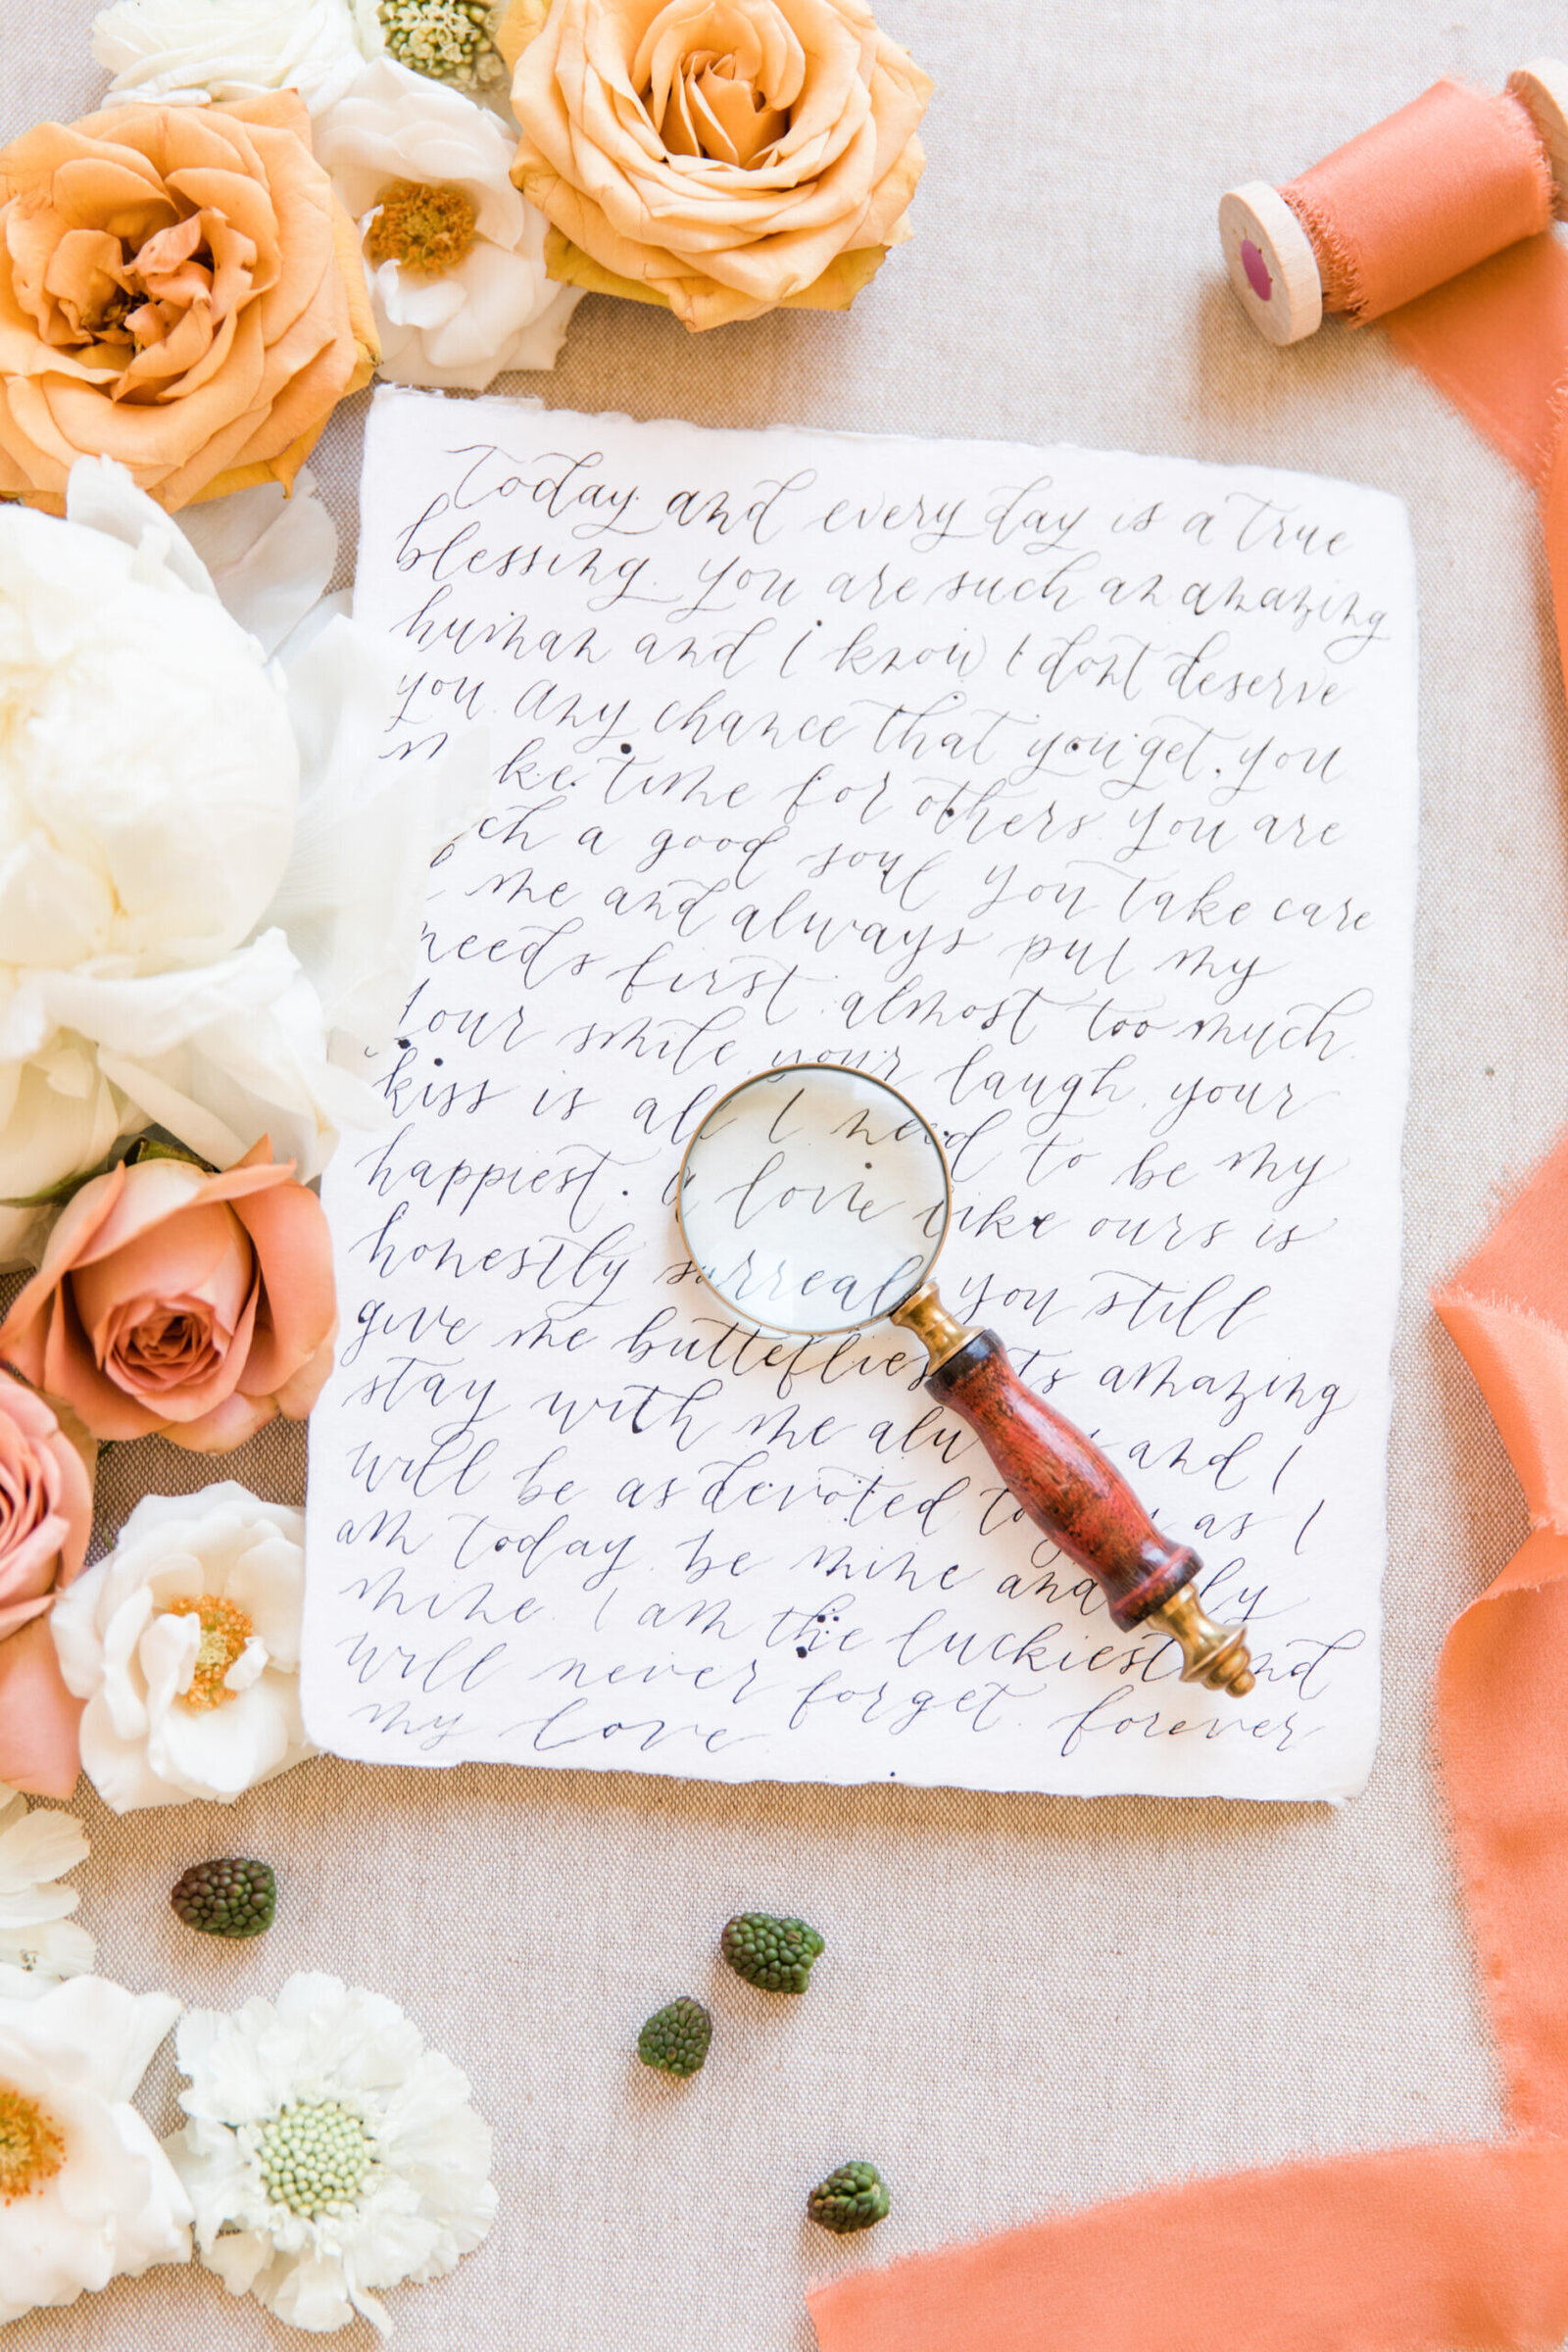 Today and every day is a true
blessing. you are such an amazing
human and I know I dont deserve
you. Any chance that you get, you
m ke time for others. You are
ch a good soul you take care
me and always put my
needs first almost too much.
Your smile your laugh, your
kiss is all I need to be my
happiest. a love like ours is
honestly surreal, you still
give me butteflies ts amazing
stay with me alw and I
will be as devoted to as I
am today. be mine and ly
mine. I am the luckiest nd
will never forget. forever
my love